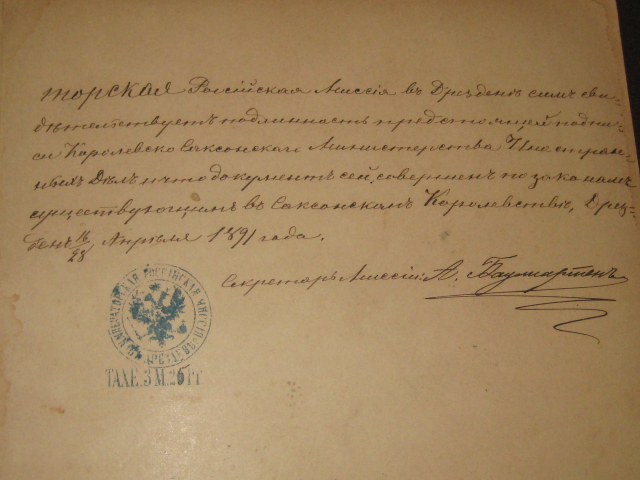 торская Россійская Миссія въ Дрезденѣ симъ сви-
дѣтельствуетъ подлинность предстоящей подпи-
си Королевско Саксонскаго Министерства Иностран-
ныхъ Дѣлъ и что документъ сей, совершенъ по законамъ
существующимъ въ Саксонскомъ Королевствѣ, Дрез-
денъ 16/28 Апрѣля 1891 года.
Секретарь Миссіи: А. Баумгартенъ
ИМПЕРАТОРСКАЯ РОССІЙСКАЯ МИССІЯ ВЪ ДРЕЗДЕНѢ
TAXE. 3 M. 25 Pf